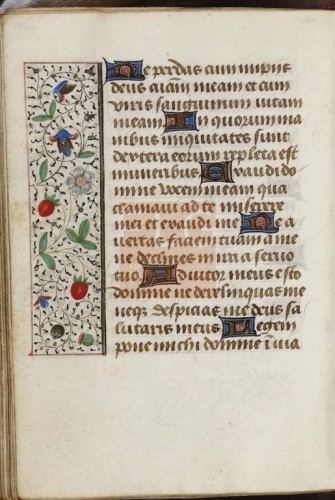 Ne perdas cum impiis
deus aīam meam et cum
viris sanguinum vitam
meam In quorum ma
nibus iniquitates sunt
dextera eorum repleta est
muneribus Exaudi do
mine vocem meam qua
clamavi ad te miserere
mei et exaudi me Ne a
vertas faciem tuam a me
ne declines in ira a servo
tuo Adiutor meus esto
domine ne derelinquas me
neqȝ despicias me deus sa
lutaris meus Legem
pone michi domine ī via